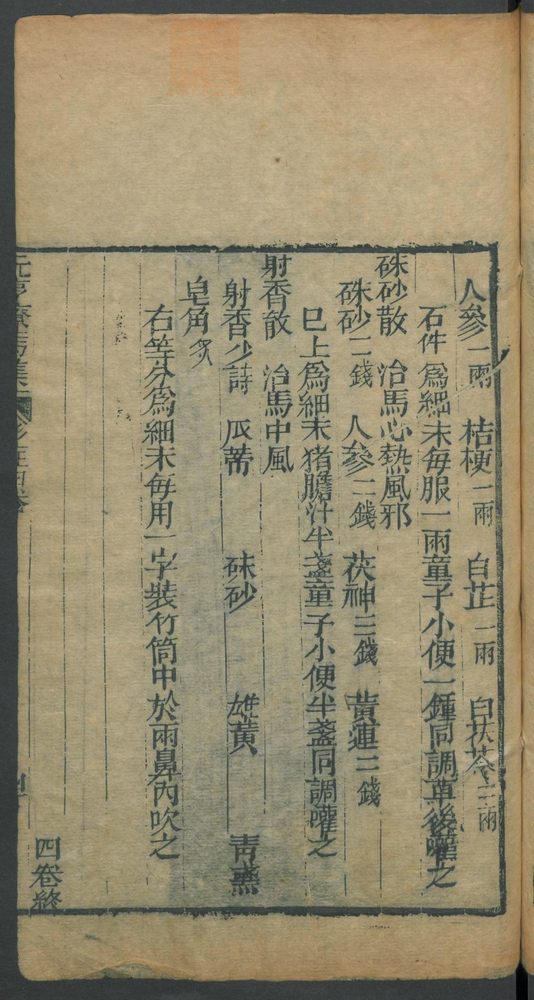 人參一兩　桔梗一兩　白芷一兩　白茯苓二兩
石件爲細末每服一兩童子小便一鍾同調草後嚾之
硃砂散　治馬心熱風邪
硃砂二錢　人參二錢　茯神三錢　黃連三錢
巳上爲細末猪膽汁半盞童子小便半盞同調嚾之
射香散　治馬中風
射香少許　瓜蒂　硃砂　雄黃　青黛
皂角炙
右等分爲細末每用一字裝竹筒中於兩鼻內吹之
四卷終
元亨療馬集